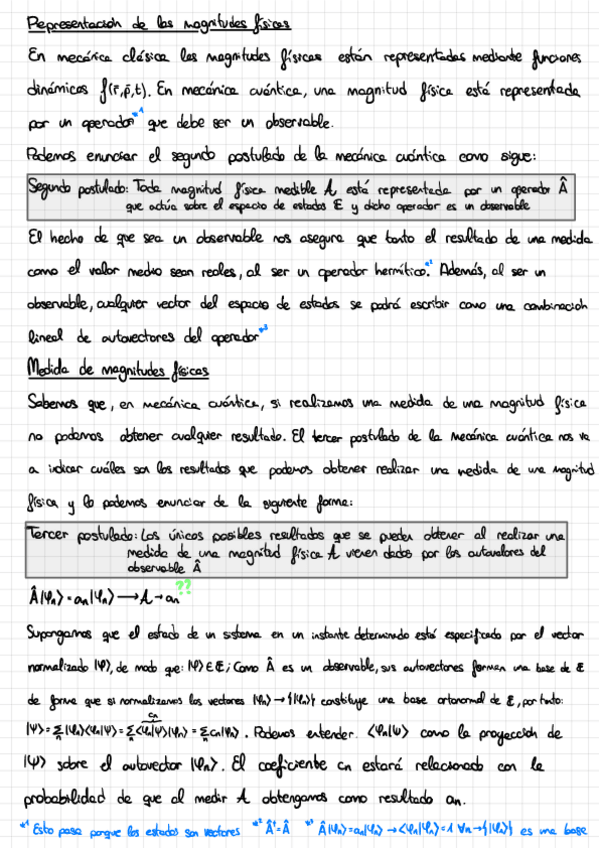 Representación de las magnitudes físicas
En mecánica clásica las magnitudes físicas están representadas mediante funciones
dinámicas f(r̄,p̄,t). En mecánica cuántica, una magnitud física está representada
por un operador*¹ que debe ser un observable.
Podemos enunciar el segundo postulado de la mecánica cuántica como sigue:
Segundo postulado: Toda magnitud física medible A está representada por un operador Â
que actúa sobre el espacio de estados E y dicho operador es un observable
El hecho de que sea un observable nos asegura que tanto el resultado de una medida
como el valor medio sean reales, al ser un operador hermítico.*² Además, al ser un
observable, cualquier vector del espacio de estados se podrá escribir como una combinación
lineal de autovectores del operador*³
Medida de magnitudes físicas
Sabemos que, en mecánica cuántica, si realizamos una medida de una magnitud física
no podemos obtener cualquier resultado. El tercer postulado de la mecánica cuántica nos va
a indicar cuáles son los resultados que podemos obtener realizar una medida de una magnitud
física y lo podemos enunciar de la siguiente forma:
Tercer postulado: Los únicos posibles resultados que se pueden obtener al realizar una
medida de una magnitud física A vienen dados por los autovalores del
observable Â
Â|φₙ⟩=aₙ|φₙ⟩⟶A→aₙ ??
Supongamos que el estado de un sistema en un instante determinado está especificado por el vector
normalizado |Ψ⟩, de modo que: |Ψ⟩∈E; Como Â es un observable, sus autovectores forman una base de E
de forma que si normalizamos los vectores |φₙ⟩→{|φₙ⟩} constituye una base ortonormal de E, por tanto:
cₙ
|Ψ⟩=Σₙ|φₙ⟩⟨φₙ|Ψ⟩=Σₙ⟨φₙ|Ψ⟩|φₙ⟩=Σₙcₙ|φₙ⟩. Podemos entender ⟨φₙ|Ψ⟩ como la proyección de
|Ψ⟩ sobre el autovector |φₙ⟩. El coeficiente cₙ estará relacionado con la
probabilidad de que al medir A obtengamos como resultado aₙ.
*¹ Esto pasa porque los estados son vectores *² Â†=Â *³ Â|φₙ⟩=aₙ|φₙ⟩→⟨φₙ|φₙ⟩=1 ∀n→{|φₙ⟩} es una base